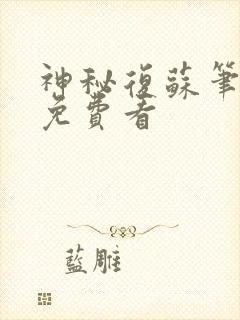 神秘復蘇筆
免費看
藍雕